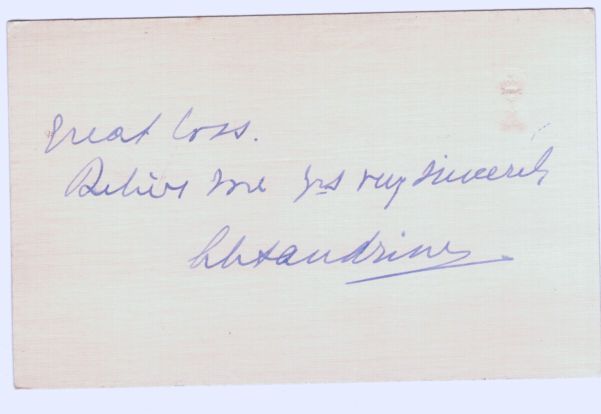 great loss.
Believe me yrs very sincerely
Alexandrine